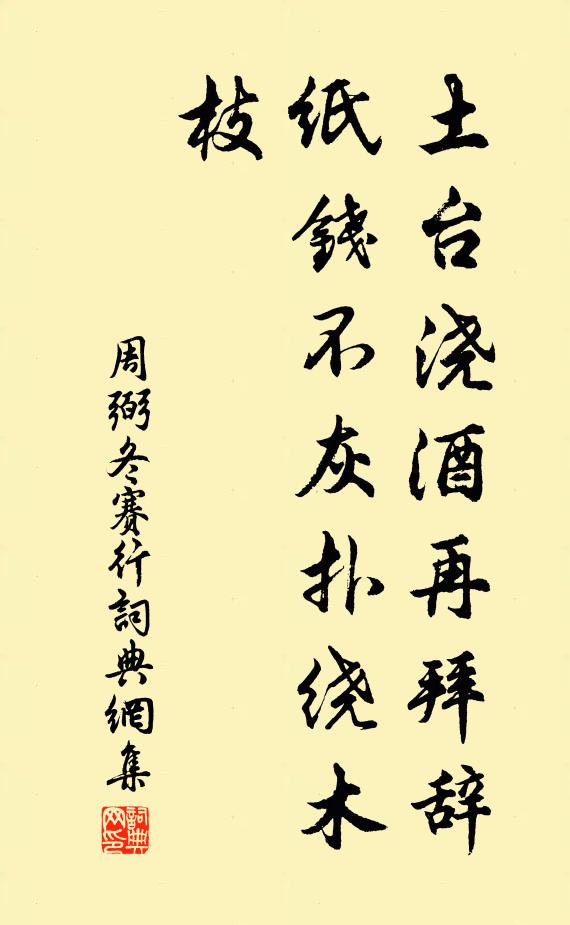 土台浇酒再拜辞
纸錢不灰扑绕木
枝
周弼冬賽行詞典網集
詞典網印